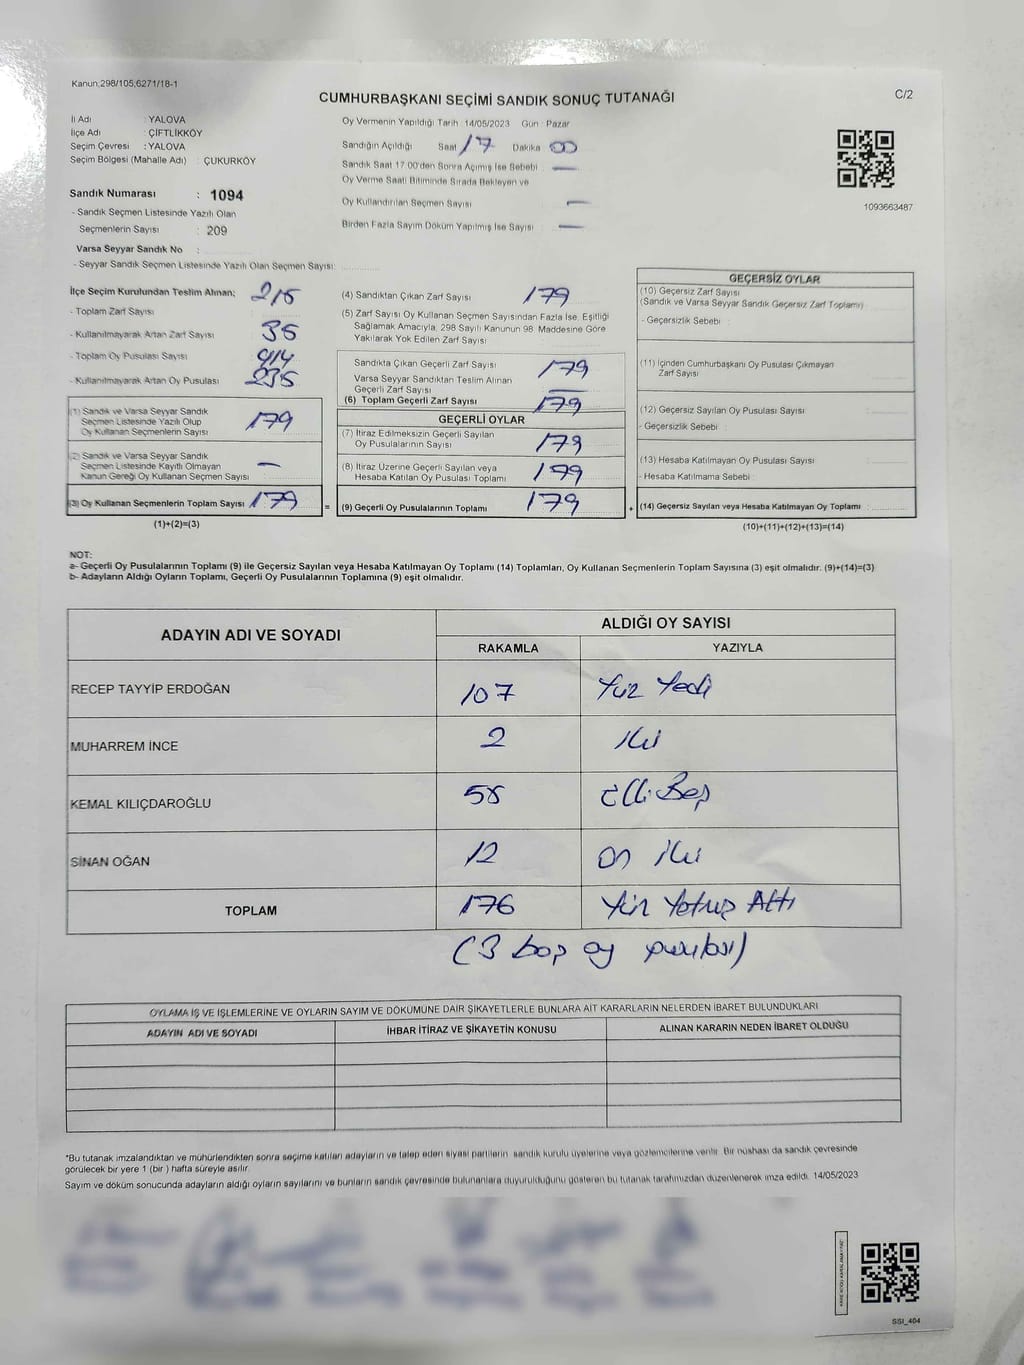 Kanun,298/105;6271/18-1
CUMHURBAŞKANI SEÇİMİ SANDIK SONUÇ TUTANAĞI
C/2
İl Adı : YALOVA
İlçe Adı : ÇİFTLİKKÖY
Seçim Çevresi : YALOVA
Seçim Bölgesi (Mahalle Adı) : ÇUKURKÖY
Sandık Numarası : 1094
- Sandık Seçmen Listesinde Yazılı Olan
Seçmenlerin Sayısı : 209
Varsa Seyyar Sandık No :
- Seyyar Sandık Seçmen Listesinde Yazılı Olan Seçmen Sayısı:
Oy Vermenin Yapıldığı Tarih : 14/05/2023 Gün : Pazar
Sandığın Açıldığı Saat 17 Dakika 00
Sandık Saat 17.00'den Sonra Açılmış İse Sebebi : —
Oy Verme Saati Bitiminde Sırada Bekleyen ve
Oy Kullandırılan Seçmen Sayısı —
Birden Fazla Sayım Döküm Yapılmış İse Sayısı : —
1093663487
İlçe Seçim Kurulundan Teslim Alınan;
- Toplam Zarf Sayısı : 215
- Kullanılmayarak Artan Zarf Sayısı 36
- Toplam Oy Pusulası Sayısı 414
- Kullanılmayarak Artan Oy Pusulası 235
(1) Sandık ve Varsa Seyyar Sandık
Seçmen Listesinde Yazılı Olup
Oy Kullanan Seçmenlerin Sayısı 179
(2) Sandık ve Varsa Seyyar Sandık
Seçmen Listesinde Kayıtlı Olmayan
Kanun Gereği Oy Kullanan Seçmen Sayısı —
(3) Oy Kullanan Seçmenlerin Toplam Sayısı 179
(1)+(2)=(3)
(4) Sandıktan Çıkan Zarf Sayısı 179
(5) Zarf Sayısı Oy Kullanan Seçmen Sayısından Fazla İse, Eşitliği
Sağlamak Amacıyla, 298 Sayılı Kanunun 98. Maddesine Göre
Yakılarak Yok Edilen Zarf Sayısı
Sandıkta Çıkan Geçerli Zarf Sayısı 179
Varsa Seyyar Sandıktan Teslim Alınan
Geçerli Zarf Sayısı —
(6) Toplam Geçerli Zarf Sayısı 179
GEÇERLİ OYLAR
(7) İtiraz Edilmeksizin Geçerli Sayılan
Oy Pusulalarının Sayısı 179
(8) İtiraz Üzerine Geçerli Sayılan veya
Hesaba Katılan Oy Pusulası Toplamı 179
= (9) Geçerli Oy Pusulalarının Toplamı 179
GEÇERSİZ OYLAR
(10) Geçersiz Zarf Sayısı
(Sandık ve Varsa Seyyar Sandık Geçersiz Zarf Toplamı)
- Geçersizlik Sebebi :
(11) İçinden Cumhurbaşkanı Oy Pusulası Çıkmayan
Zarf Sayısı
(12) Geçersiz Sayılan Oy Pusulası Sayısı :
- Geçersizlik Sebebi :
(13) Hesaba Katılmayan Oy Pusulası Sayısı :
- Hesaba Katılmama Sebebi :
+ (14) Geçersiz Sayılan veya Hesaba Katılmayan Oy Toplamı :
(10)+(11)+(12)+(13)=(14)
NOT:
a- Geçerli Oy Pusulalarının Toplamı (9) ile Geçersiz Sayılan veya Hesaba Katılmayan Oy Toplamı (14) Toplamları, Oy Kullanan Seçmenlerin Toplam Sayısına (3) eşit olmalıdır. (9)+(14)=(3)
b- Adayların Aldığı Oyların Toplamı, Geçerli Oy Pusulalarının Toplamına (9) eşit olmalıdır.
ADAYIN ADI VE SOYADI ALDIĞI OY SAYISI
RAKAMLA YAZIYLA
RECEP TAYYİP ERDOĞAN 107 Yüz Yedi
MUHARREM İNCE 2 İki
KEMAL KILIÇDAROĞLU Elli Beş
SİNAN OĞAN 12 On iki
TOPLAM 176 Yüz Yetmiş Altı
(3 boş oy pusulası)
OYLAMA İŞ VE İŞLEMLERİNE VE OYLARIN SAYIM VE DÖKÜMÜNE DAİR ŞİKAYETLERLE BUNLARA AİT KARARLARIN NELERDEN İBARET BULUNDUKLARI
ADAYIN ADI VE SOYADI İHBAR İTİRAZ VE ŞİKAYETİN KONUSU ALINAN KARARIN NEDEN İBARET OLDUĞU
*Bu tutanak imzalandıktan ve mühürlendikten sonra seçime katılan adayların ve talep eden siyasi partilerin sandık kurulu üyelerine veya gözlemcilerine verilir. Bir nüshası da sandık çevresinde
görülecek bir yere 1 (bir ) hafta süreyle asılır.
Sayım ve döküm sonucunda adayların aldığı oyların sayılarını ve bunların sandık çevresinde bulunanlara duyurulduğunu gösteren bu tutanak tarafımızdan düzenlenerek imza edildi. 14/05/2023
SSİ_404